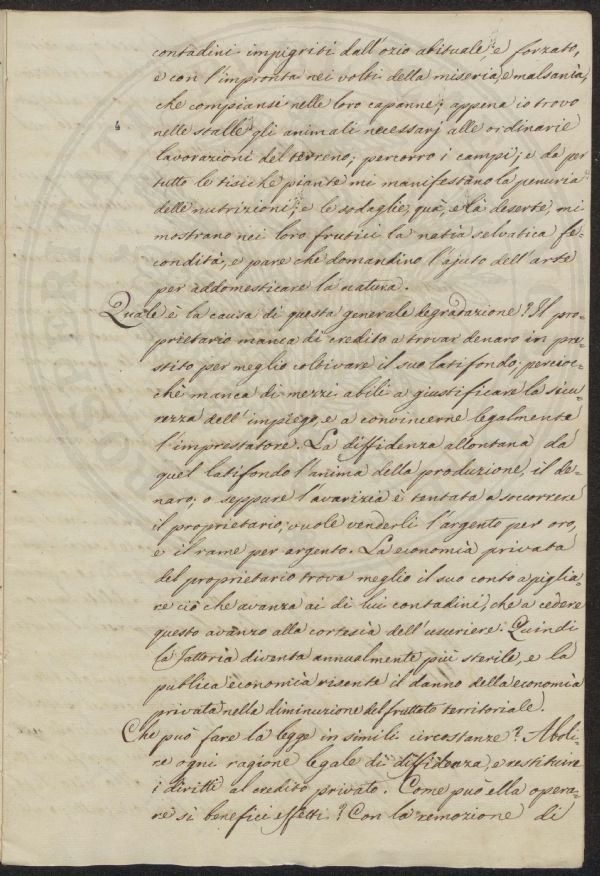 contadini impigriti dall'ozio abituale, e forzato,
e con l'impronta nei volti della miseria, e malsania,
che compiansi nelle loro capanne; appena io trovo
nelle stalle gli animali necessarj alle ordinarie
lavorazioni del terreno; percorro i campi; e da per
tutto le tisiche piante mi manifestano la penuria
delle nutrizioni; e le sodaglie, quà, e là deserte, mi
mostrano nei loro frutici la natia selvatica fe-
condità, e pare che domandino l'ajuto dell'arte
per addomesticare la natura.
Quale è la causa di questa generale degradazione? Il pro-
prietario manca di credito a trovar denaro in pre-
stito per meglio coltivare il suo latifondo; percioc-
chè manca di mezzi abili a giustificare la sicu-
rezza dell'impiego, e a convincerne legalmente
l'imprestatore. La diffidenza allontana da
quel latifondo l'anima della produzione, il de-
naro; o seppure l'avarizia è tentata a soccorrere
il proprietario, vuole venderli l'argento per oro,
e il rame per argento. La economia privata
del proprietario trova meglio il suo conto a piglia-
re ciò che avanza ai di lui contadini, che a cedere
questo avanzo alla cortesia dell'usuriere. Quindi
la Fattoria diventa annualmente più sterile, e la
publica economia risente il danno della economia
privata nella diminuzione del fruttato territoriale.
Che può fare la legge in simili circostanze? Aboli-
re ogni ragione legale di diffidenza, e restituire
i diritti al credito privato. Come può ella opera-
re si benefici effetti? Con la remozione di